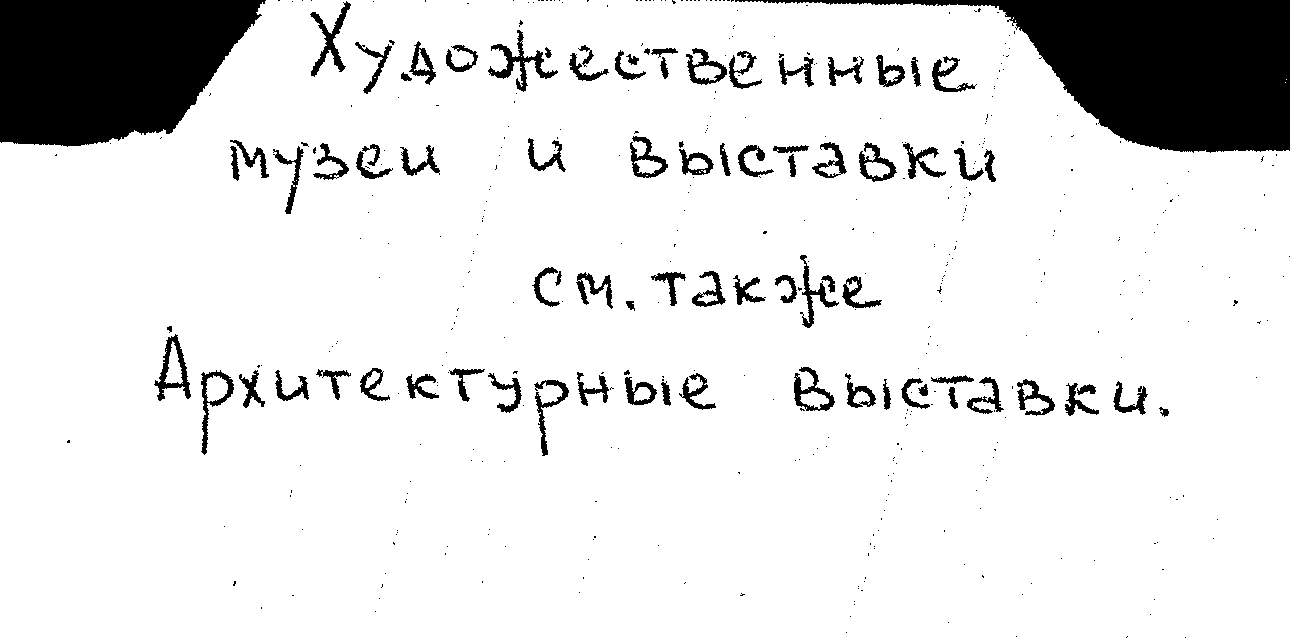 Художественные
музеи и выставки
см. также
Архитектурные выставки.